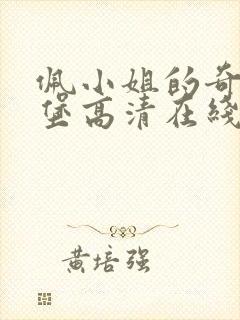 佩小姐的奇
堡高清在綫
黄培强